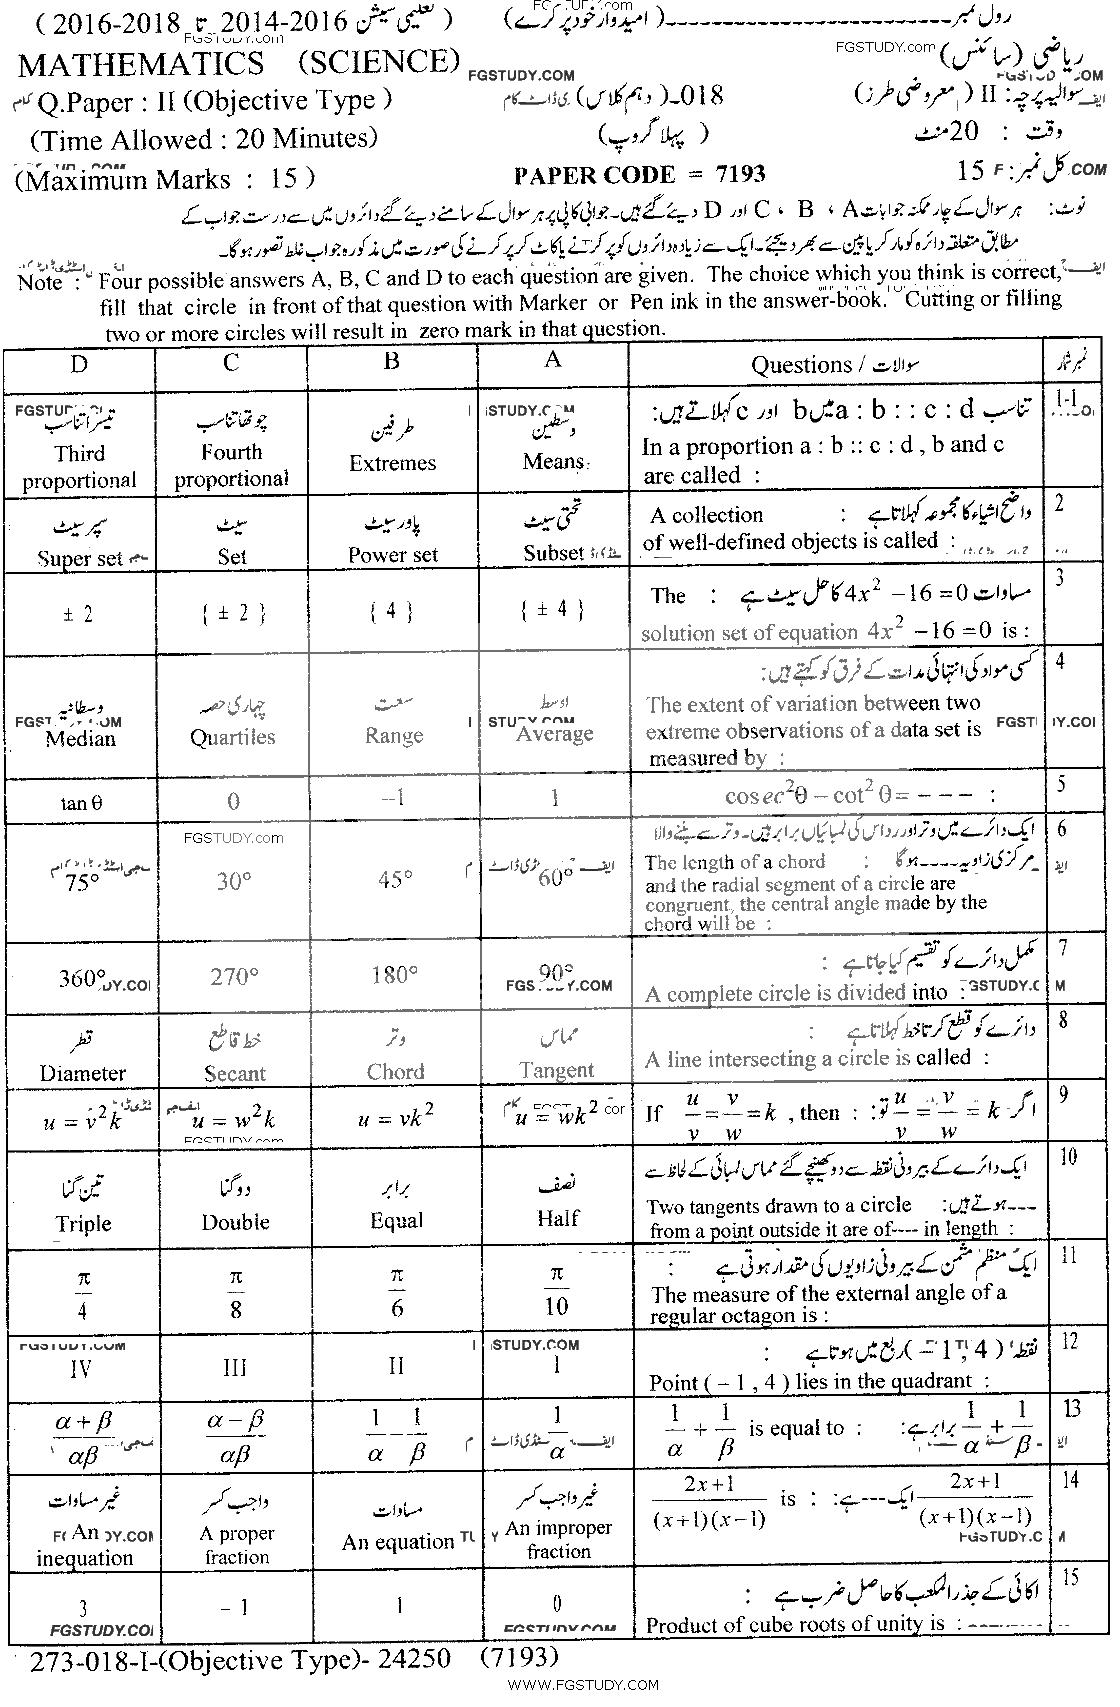 رول نمبر ـــــــــــــــــــ (امیدوار خود پر کرے) (تعلیمی سیشن 2014-2016 تا 2016-2018)
FGSTUDY.com
ریاضی (سائنس) FGSTUDY.com
MATHEMATICS (SCIENCE) FGSTUDY.COM
سوالیہ پرچہ : II (معروضی طرز) 018-(دہم کلاس)
Q.Paper : II (Objective Type )
وقت : 20 منٹ (پہلا گروپ)
(Time Allowed : 20 Minutes)
کل نمبر : 15
(Maximum Marks : 15 ) PAPER CODE = 7193
نوٹ: ہر سوال کے چار ممکنہ جوابات A ، B ، C اور D دیئے گئے ہیں۔ جوابی کاپی پر ہر سوال کے سامنے دیئے گئے دائروں میں سے درست جواب کے
مطابق متعلقہ دائرہ کو مارکر یا پین سے بھر دیجئے۔ ایک سے زیادہ دائروں کو پر کرنے یا کاٹ کر پر کرنے کی صورت میں مذکورہ جواب غلط تصور ہو گا۔
Note : Four possible answers A, B, C and D to each question are given. The choice which you think is correct,
fill that circle in front of that question with Marker or Pen ink in the answer-book. Cutting or filling
two or more circles will result in zero mark in that question.
D C B A Questions / سوالات نمبر شمار
1-1 تناسب a : b : : c : d میں b اور c کہلاتے ہیں:
In a proportion a : b :: c : d , b and c
are called :
وسطین طرفین چوتھا تناسب تیسرا تناسب
Third proportional Fourth proportional Extremes Means
2 واضح اشیاء کا مجموعہ کہلاتا ہے : A collection
of well-defined objects is called :
تحتی سیٹ پاور سیٹ سیٹ سپر سیٹ
Super set Set Power set Subset
3 مساوات 4x² − 16 = 0 کا حل سیٹ ہے : The
solution set of equation 4x² − 16 = 0 is :
± 2 { ± 2 } { 4 } { ± 4 }
4 کسی مواد کی انتہائی مدات کے فرق کو کہتے ہیں:
The extent of variation between two
extreme observations of a data set is
measured by :
اوسط سعت چہاری حصہ وسطانیہ
Median Quartiles Range Average
5 cosec²θ − cot²θ = − − − :
tan θ 0 −1 1
6 ایک دائرے میں وتر اور رداس کی لمبائیاں برابر ہیں۔ وتر سے بننے والا
مرکزی زاویہ ---- ہو گا : The length of a chord
and the radial segment of a circle are
congruent, the central angle made by the
chord will be :
75° 30° 45° 60°
FGSTUDY.com
7 مکمل دائرے کو تقسیم کیا جاتا ہے :
A complete circle is divided into :
360° 270° 180° 90°
8 دائرے کو قطع کرتا خط کہلاتا ہے :
A line intersecting a circle is called :
مماس وتر خط قاطع قطر
Diameter Secant Chord Tangent
9 If u/v = v/w = k , then : اگر u/v = v/w = k تو :
u = v²k u = w²k u = vk² u = wk²
FGSTUDY.com
10 ایک دائرے کے بیرونی نقطہ سے دو کھینچے گئے مماس لمبائی کے لحاظ سے
--- ہوتے ہیں: Two tangents drawn to a circle
from a point outside it are of---- in length :
نصف برابر دوگنا تین گنا
Triple Double Equal Half
11 ایک منظم مثمن کے بیرونی زاویوں کی مقدار ہوتی ہے :
The measure of the external angle of a
regular octagon is :
π/4 π/8 π/6 π/10
12 نقطہ (−1 , 4) ربع میں ہوتا ہے :
Point ( − 1 , 4 ) lies in the quadrant :
IV III II I
13 1/α + 1/β is equal to : 1/α + 1/β برابر ہے:
α + β/αβ α − β/αβ 1/α − 1/β 1/α
14 2x+1/(x+1)(x−1) is : 2x+1/(x+1)(x−1) ایک --- ہے:
غیر واجب کسر مساوات واجب کسر غیر مساوات
An inequation A proper fraction An equation An improper fraction
15 اکائی کے جذر المکعب کا حاصل ضرب ہے :
Product of cube roots of unity is :
3 − 1 1 0
273-018-I-(Objective Type)- 24250 (7193)
WWW.FGSTUDY.COM